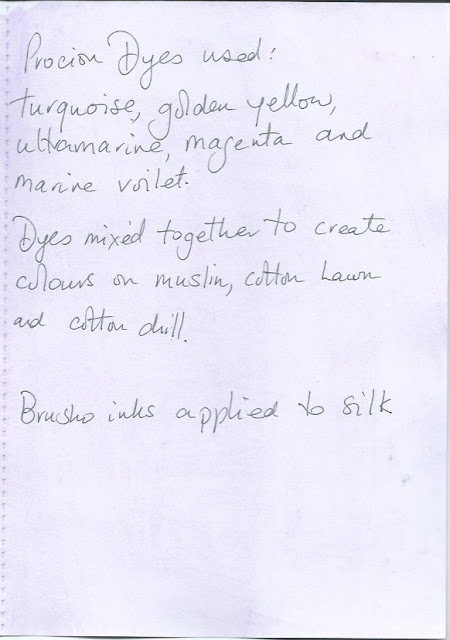 Procion Dyes used:
turquoise, golden yellow,
ultramarine, magenta and
marine voilet.
Dyes mixed together to create
colours on muslin, cotton lawn
and cotton drill.
Brusho inks applied to silk